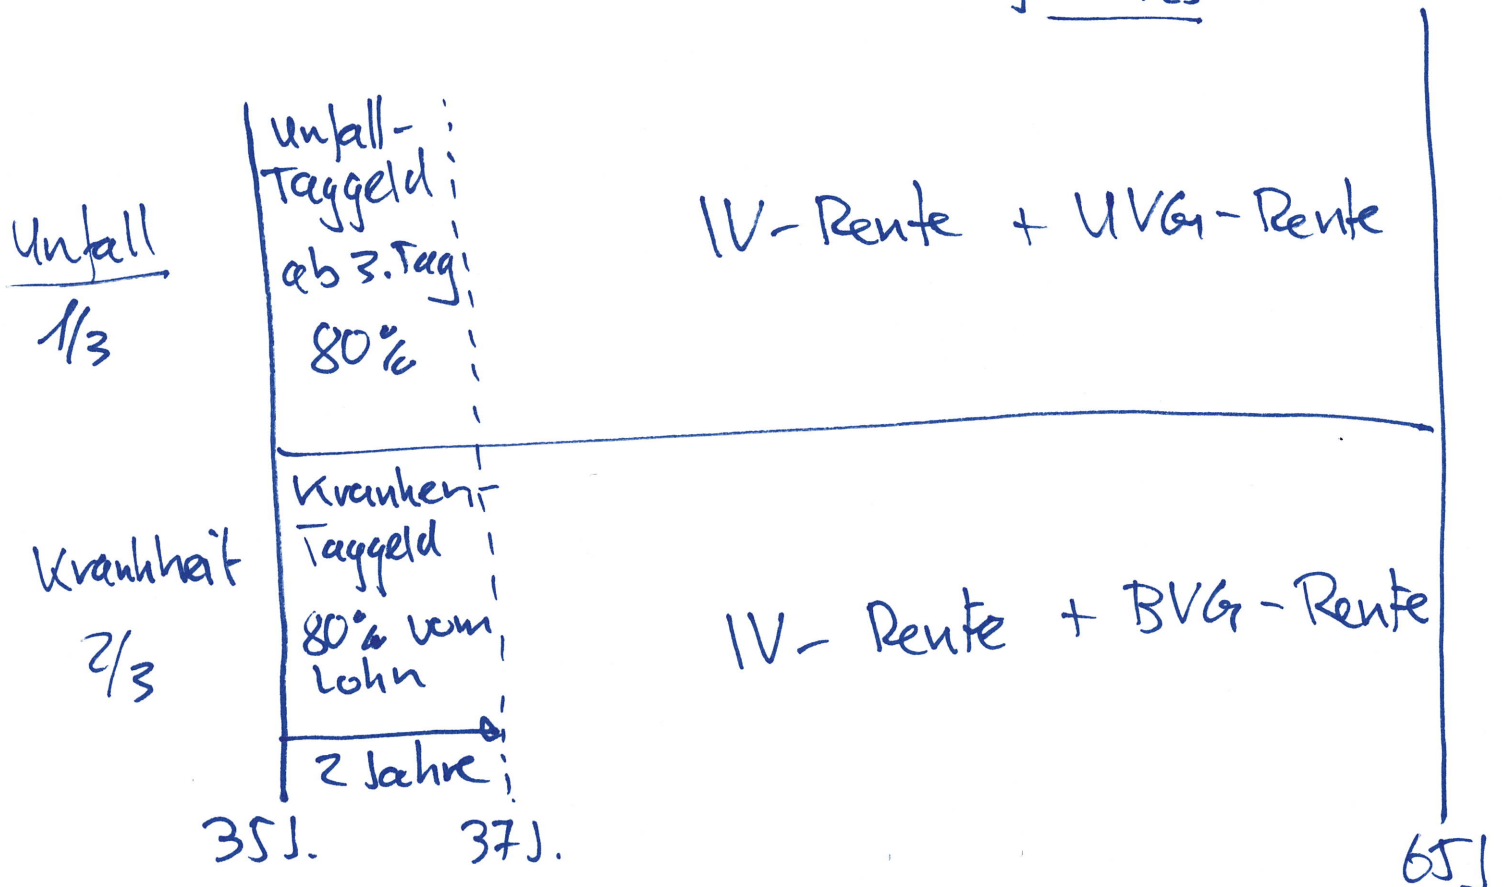 Unfall
1/3
Unfall-
Taggeld
ab 3. Tag
80%
IV-Rente + UVG-Rente
Krankheit
2/3
Kranken-
Taggeld
80% vom
Lohn
2 Jahre
IV- Rente + BVG-Rente
35J.
37J.
65J